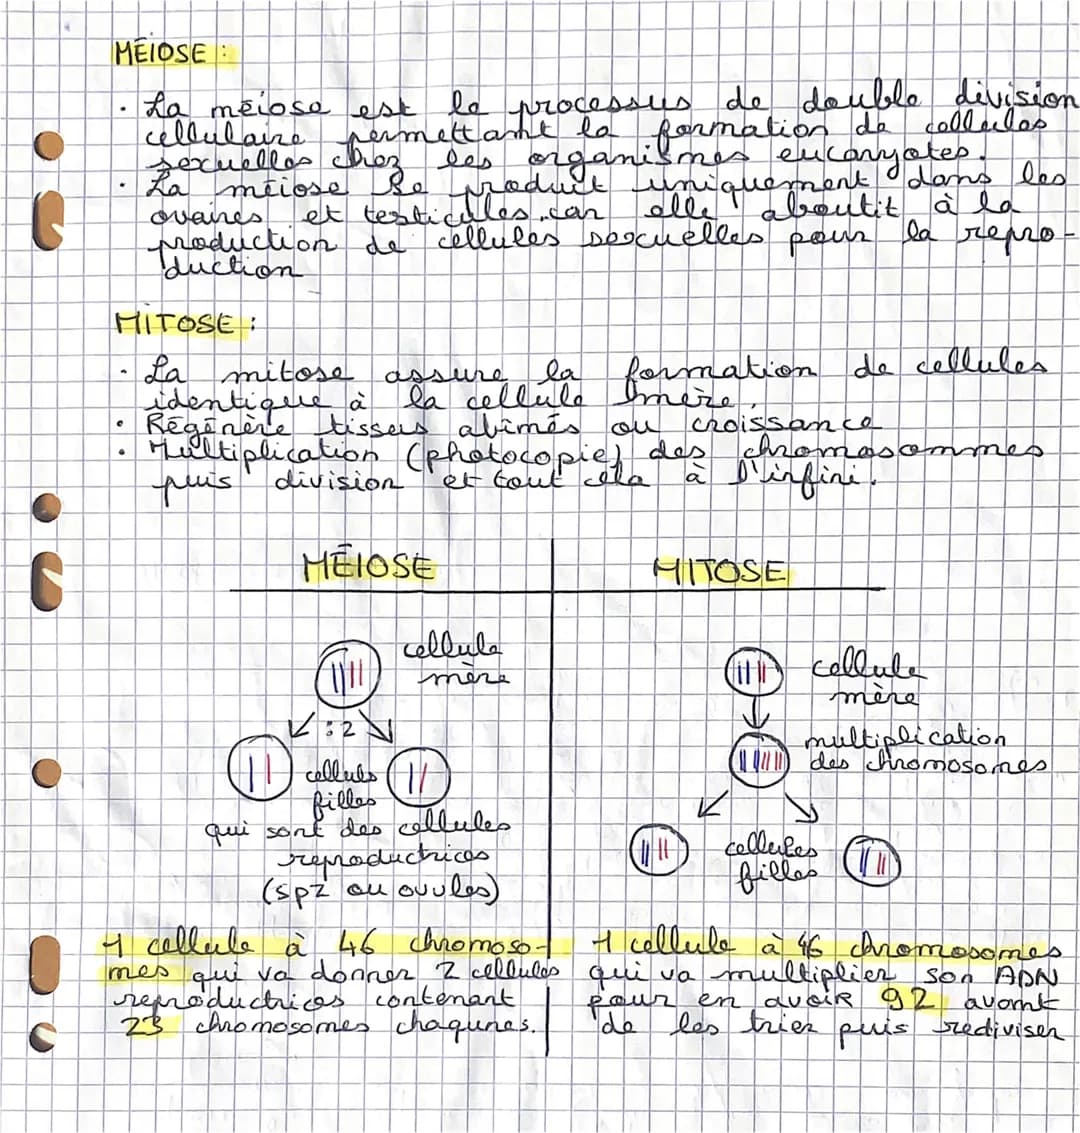 MÉIOSE :
· La méiose est le processus de double division
cellulaire permettant la formation de cellules
sexuelles chez les organismes eucaryotes.
· La méiose se produit uniquement dans les
ovaires et testicules, car elle aboutit à la
production de cellules sexuelles pour la repro-
duction
MITOSE :
· La mitose assure la formation de cellules
identique à la cellule mère.
· Régénère tissus abîmés ou croissance
· Multiplication (photocopie) des chromosommes
puis division et tout cela à l'infini.
MÉIOSE
MITOSE
cellule
mère
: 2
cellules
filles
qui sont des cellules
reproductrices
(spz ou ovules)
cellule
mère
multiplication
des chromosomes
cellules
filles
1 cellule à 46 chromoso-
mes qui va donner 2 cellules
reproductrices contenant
23 chromosomes chaqunes.
1 cellule à 46 chromosomes
qui va multiplier son ADN
pour en avoir 92 avant
de les trier puis rediviser